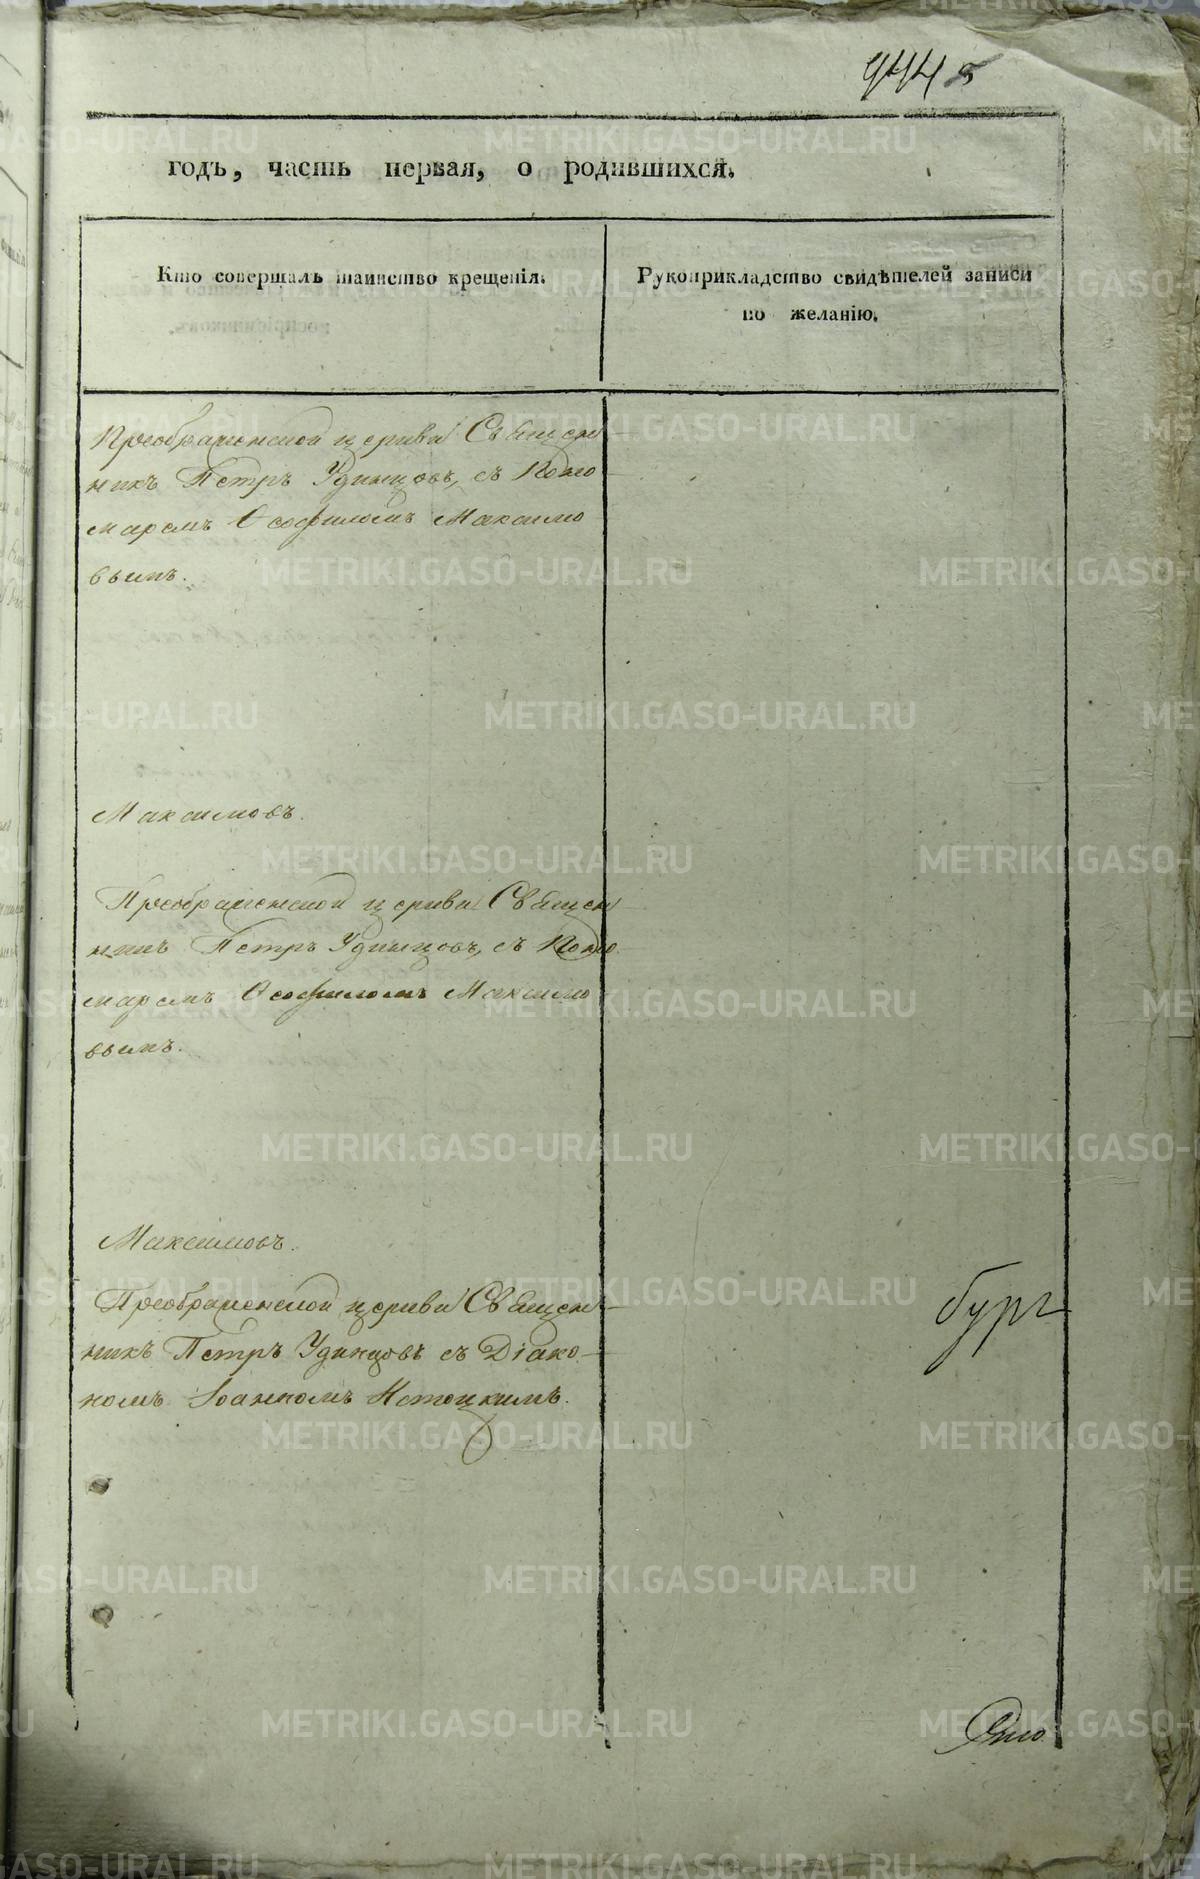 944
годъ, часть первая, о родившихся.
Кто совершалъ таинство крещенія.
Рукоприкладство свидѣтелей записи
по желанію.
Преображенской церкви Священ
никъ Петръ Удинцовъ, съ Поно
маремъ Ѳеофиломъ Максимо
вымъ.
Максимовъ.
Преображенской церкви Священ
никъ Петръ Удинцовъ, съ Поно
маремъ Ѳеофиломъ Максимо
вымъ.
Максимовъ.
Преображенской церкви Священ
никъ Петръ Удинцовъ съ Діако
номъ Іоанномъ Истоцкимъ.
бург
METRIKI.GASO-URAL.RU